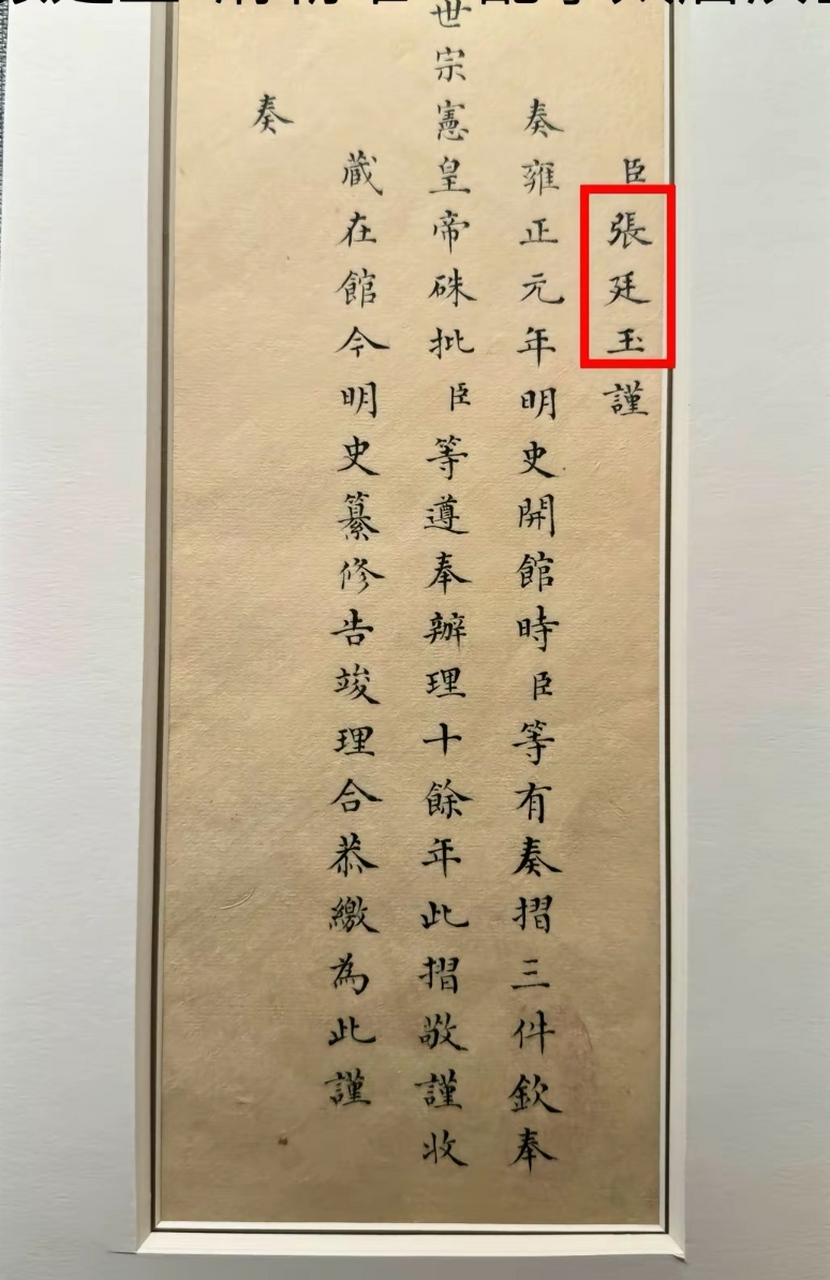 臣張廷玉謹
奏雍正元年明史開館時臣等有奏摺三件欽奉
世宗憲皇帝硃批臣等遵奉辦理十餘年此摺敬謹收
藏在館今明史纂修告竣理合恭繳為此謹
奏